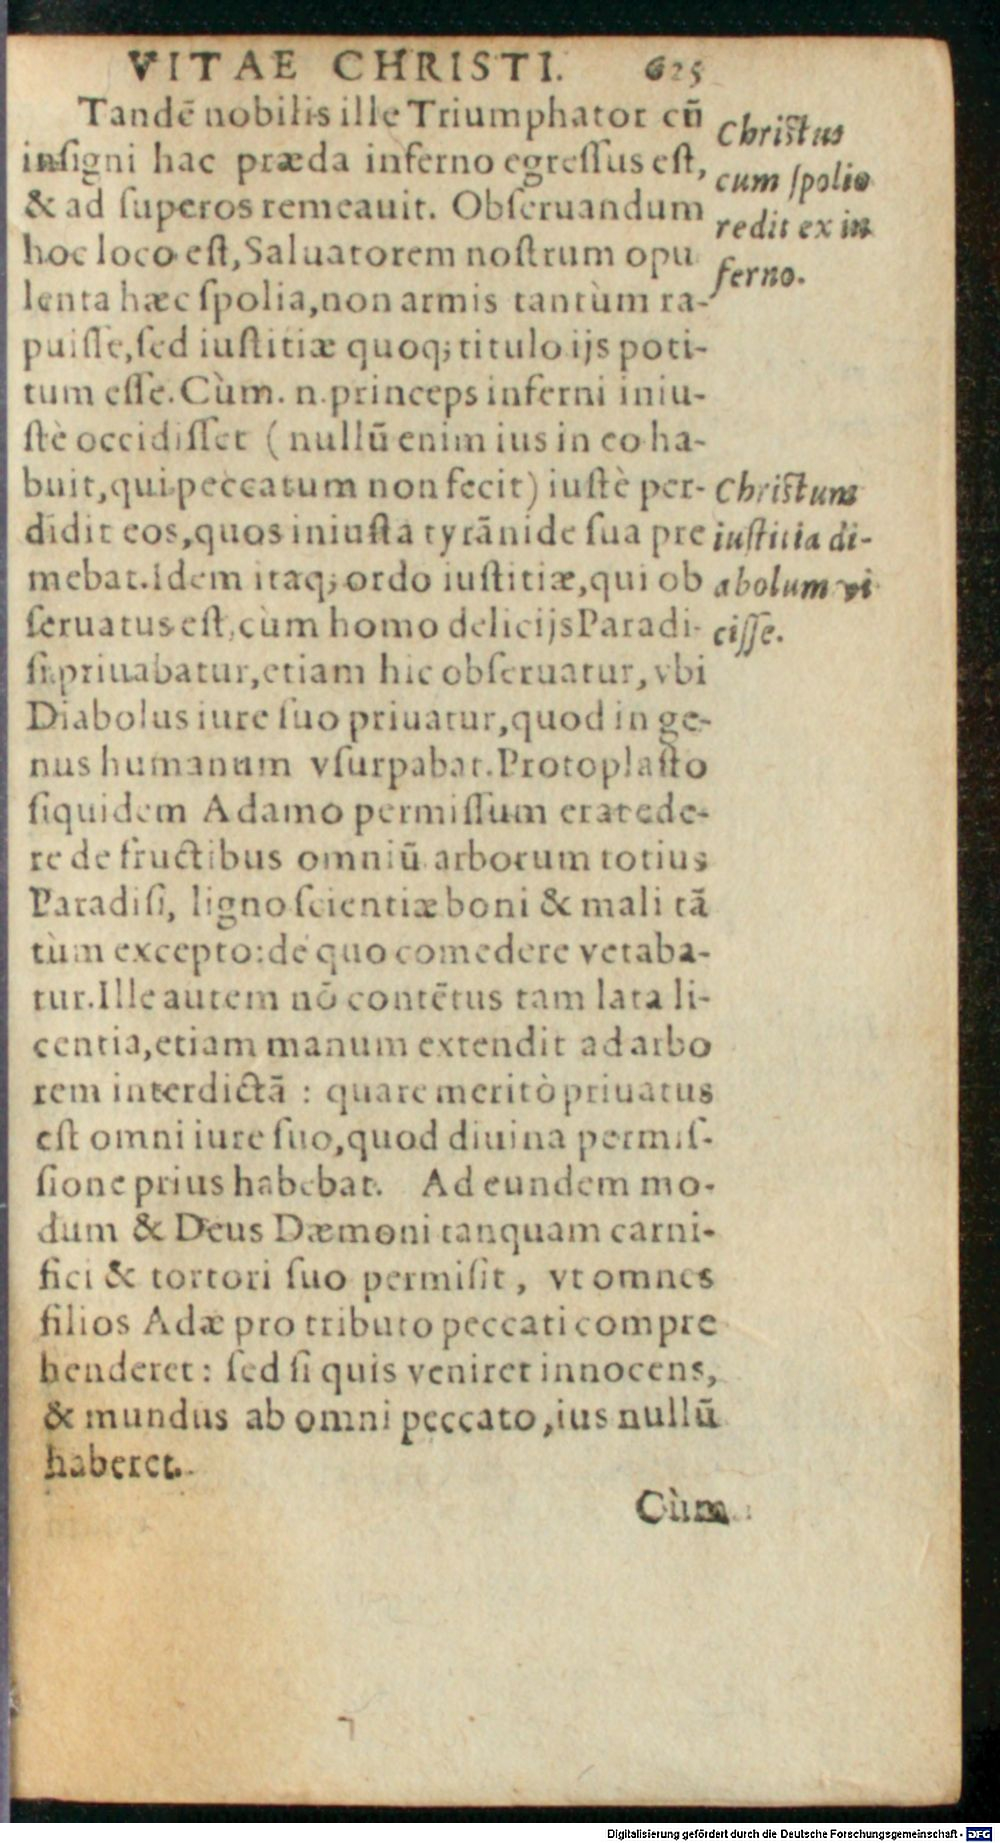 VITAE CHRISTI. 625
Tandē nobilis ille Triumphator cū
insigni hac præda inferno egressus est,
& ad superos remeauit. Obseruandum
hoc loco est, Saluatorem nostrum opu
lenta hæc spolia, non armis tantùm ra-
puisse, sed iustitiæ quoq; titulo ijs poti-
tum esse. Cùm. n. princeps inferni iniu-
stè occidisset (nullū enim ius in eo ha-
buit, qui peccatum non fecit) iustè per-
didit eos, quos iniusta tyrānide sua pre
mebat. Idem itaq; ordo iustitiæ, qui ob
seruatus est, cùm homo delicijs Paradi-
si priuabatur, etiam hic obseruatur, vbi
Diabolus iure suo priuatur, quod in ge-
nus humanum vsurpabat. Protoplasto
siquidem Adamo permissum erat ede-
re de fructibus omniū arborum totius
Paradisi, ligno scientiæ boni & mali tā
tùm excepto: de quo comedere vetaba-
tur. Ille autem nō contētus tam lata li-
centia, etiam manum extendit ad arbo
rem interdictā : quare meritò priuatus
est omni iure suo, quod diuina permis-
sione prius habebat. Ad eundem mo-
dum & Deus Dæmoni tanquam carni-
fici & tortori suo permisit, vt omnes
filios Adæ pro tributo peccati compre
henderet : sed si quis veniret innocens,
& mundus ab omni peccato, ius nullū
haberet.
Cùm
Christus
cum spolio
redit ex in
ferno.
Christum
iustitia di-
abolum vi
cisse.
Digitalisierung gefördert durch die Deutsche Forschungsgemeinschaft - DFG